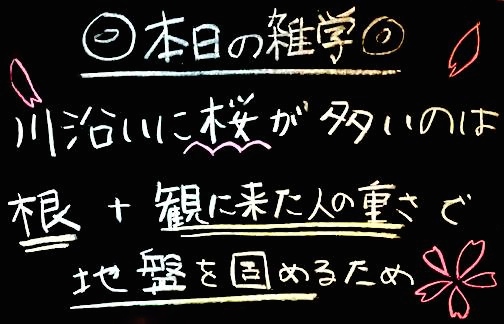 ◎本日の雑学◎
川沿いに桜が多いのは
根+観に来た人の重さで
地盤を固めるため